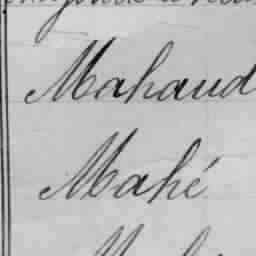 Mahaud
Mahé